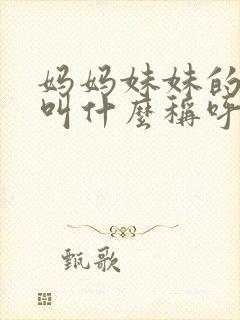 妈妈妹妹的
叫什麽稱呼
甄歌